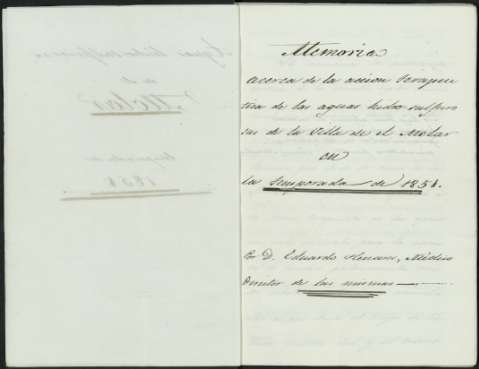 Memoria
acerca de la accion terapeu
tica de las aguas hidro sulfuro
sas de la Villa de el Molar
en
la temporada de 1858.
Por D. Eduardo Médico
Director de las mismas